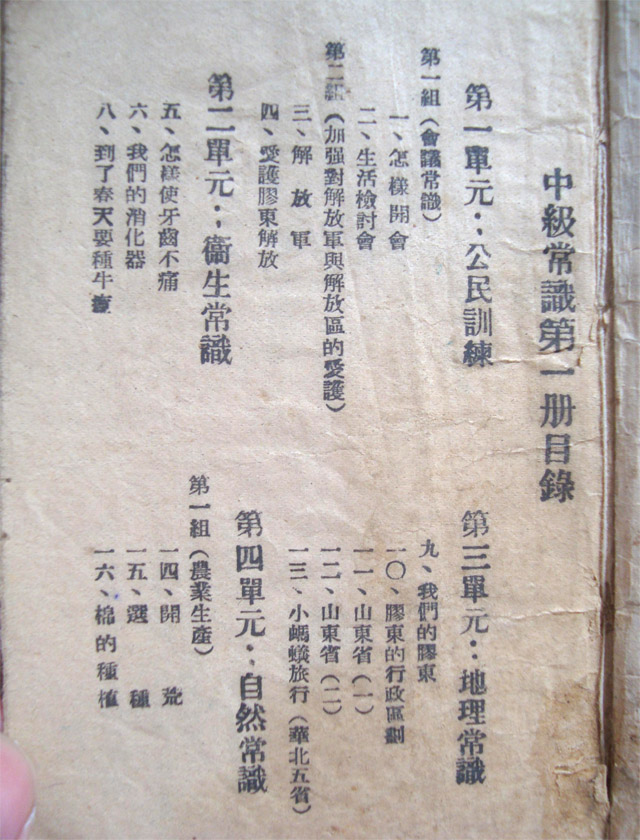 中級常識第一册目錄
第一單元：公民訓練
第一組（會議常識）
一、怎樣開會
二、生活檢討會
第二組（加强對解放軍與解放區的愛護）
三、解放軍
四、愛護膠東解放
第二單元：衞生常識
五、怎樣使牙齒不痛
六、我們的消化器
八、到了春天要種牛痘
第三單元：地理常識
九、我們的膠東
一〇、膠東的行政區劃
一一、山東省（一）
一二、山東省（二）
一三、小螞蟻旅行（華北五省）
第四單元：自然常識
第一組（農業生產）
一四、開荒
一五、選種
一六、棉的種植